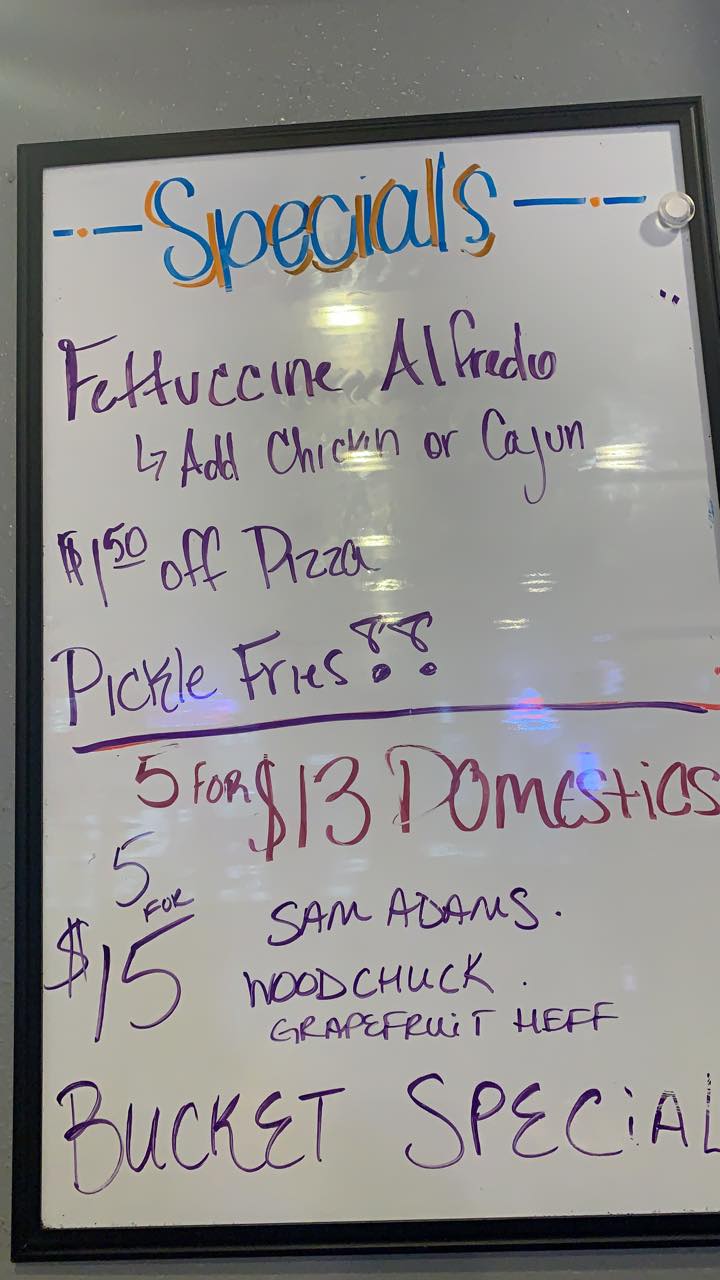 Specials
Fettuccine Alfredo
↳ Add Chickin or Cajun
$1.50 off Pizza
Pickle Fries!!
5 FOR $13 Domestics
5 FOR $15
SAM ADAMS.
WOODCHUCK.
GRAPEFRUIT HEFF
BUCKET SPECIAL